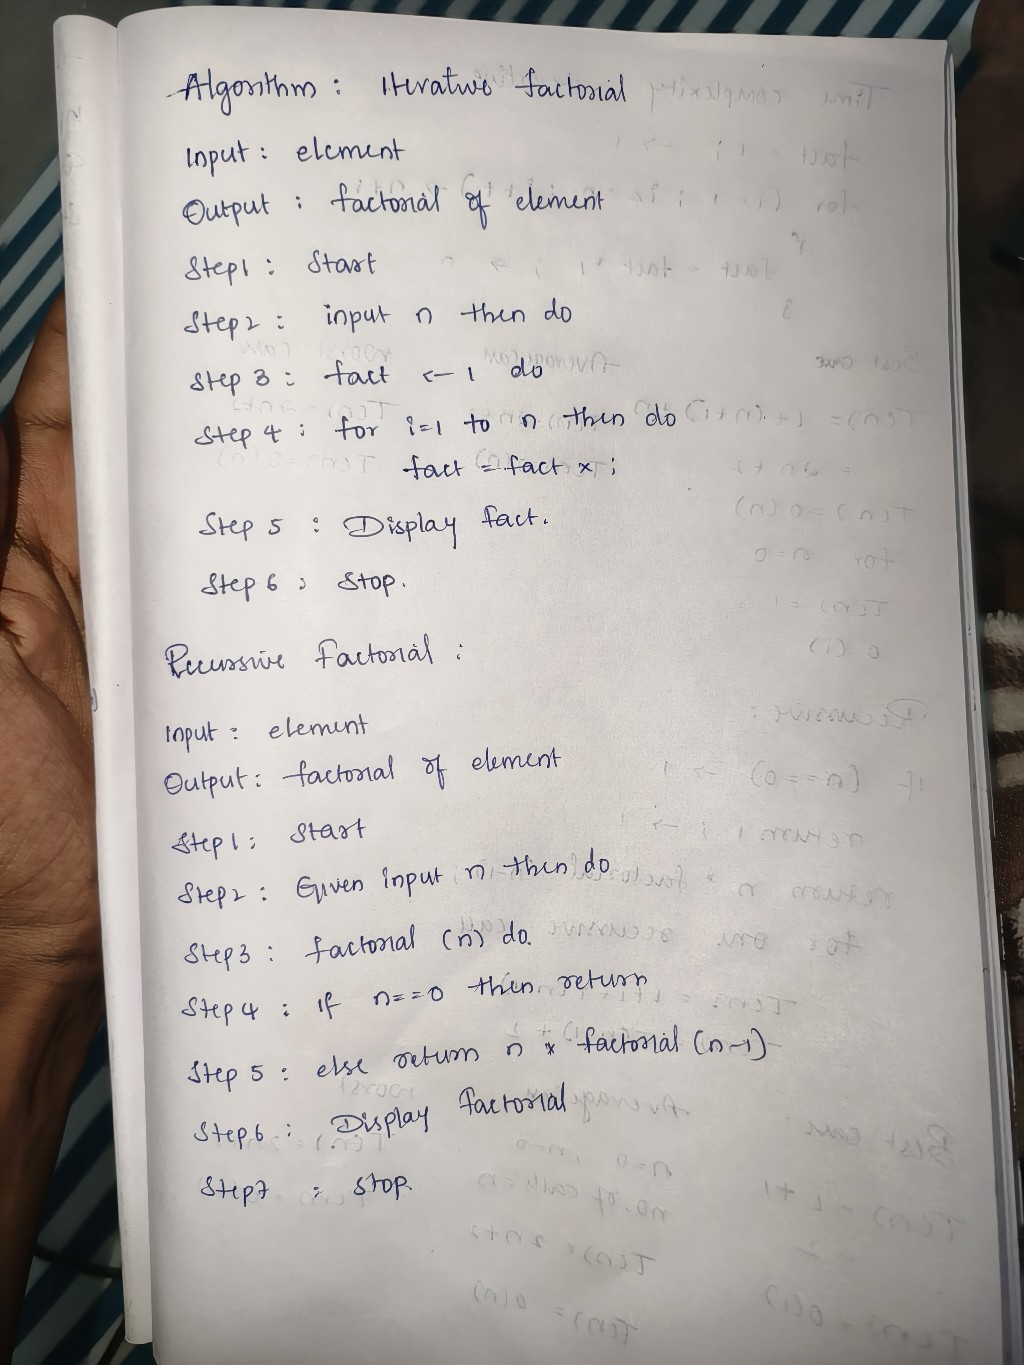 Algorithm : Iterative factorial
Input : element
Output : factorial of element
Step1 : Start
Step2 : input n then do
Step 3 : fact ← 1 do
Step 4 : for i=1 to n then do
fact = fact × i
Step 5 : Display fact.
Step 6 : Stop.
Recursive Factorial :
Input : element
Output : factorial of element
Step1 : Start
Step2 : Given input n then do
Step3 : factorial (n) do.
Step 4 : if n==0 then return
Step 5 : else return n * factorial (n-1)
Step6 : Display factorial
Step7 : Stop.